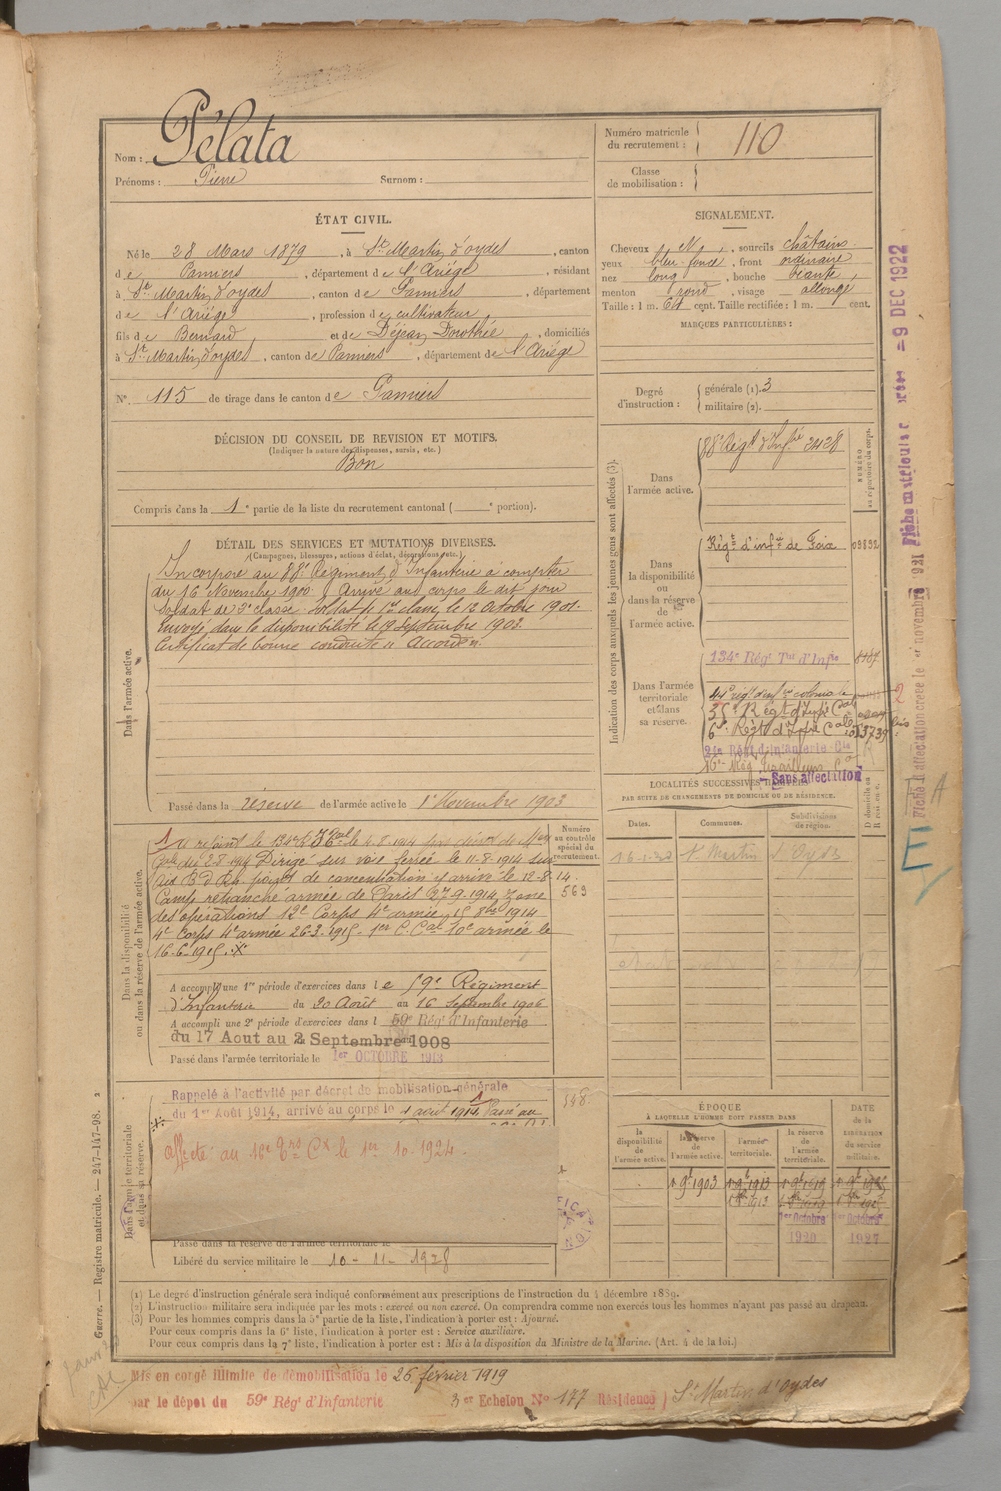 Nom : Pélata
Prénoms : Pierre Surnom :
Numéro matricule du recrutement : 110
Classe de mobilisation :
ÉTAT CIVIL.
Né le 28 Mars 1879, à St Martin d'oydes, canton
de Pamiers, département de l'Ariége, résidant
à St Martin d'oydes, canton de Pamiers, département
de l'Ariége, profession de cultivateur,
fils de Bernard et de Déjean Dorothée, domiciliés
à St Martin d'oydes, canton de Pamiers, département de l'Ariége
N° 115 de tirage dans le canton de Pamiers
DÉCISION DU CONSEIL DE REVISION ET MOTIFS.
(Indiquer la nature des dispenses, sursis, etc.)
Bon
Compris dans la 1e partie de la liste du recrutement cantonal ( e portion).
SIGNALEMENT.
Cheveux N, sourcils châtains
yeux bleu foncé, front ordinaire
nez long, bouche béante,
menton rond, visage allongé
Taille : 1 m. 64 cent. Taille rectifiée : 1 m. cent.
MARQUES PARTICULIÈRES :
Degré d'instruction : générale (1). 3
militaire (2).
DÉTAIL DES SERVICES ET MUTATIONS DIVERSES.
(Campagnes, blessures, actions d'éclat, décorations, etc.)
Dans l'armée active.
Incorporé au 88e Régiment d'Infanterie à compter
du 16 Novembre 1900. Arrivé au corps le dit jour
Soldat de 2e classe. Soldat de 1re classe le 12 Octobre 1901.
Envoyé dans la disponibilité le 19 Septembre 1903.
Certificat de bonne conduite "Accordé".
Passé dans la réserve de l'armée active le 1er Novembre 1903
Indication des corps auxquels les jeunes gens sont affectés (3)
NUMÉRO au répertoire du corps.
Dans l'armée active.
88e Régt d'Infrie 2428
Dans la disponibilité ou dans la réserve de l'armée active.
Régt d'infie de Foix 09892
Dans l'armée territoriale et dans sa réserve.
134e Régt Tal d'Infie
44e régt d'infie coloniale
35e Régt d'Infie Cale
6e Régt d'Infie Cale
24e Régt d'Infanterie Cle
16e Rég. Tirailleurs
Sans affectation
LOCALITÉS SUCCESSIVES HABITÉES
PAR SUITE DE CHANGEMENTS DE DOMICILE OU DE RÉSIDENCE.
Dates. Communes. Subdivisions de région. D domicile ou R résidence.
St Martin d'Oydes
Dans la disponibilité ou dans la réserve de l'armée active.
Numéro au contrôle spécial du recrutement.
569
Gale du 2-8-1914 Dirigé sur voie ferrée le 11-8-1914
point de concentration y arrivé le 12-8-14.
Camp retranché armée de Paris 27-9-1914, zone
des opérations 12e Corps 4e armée, 15 8bre 1914
4e Corps 4e armée 26-3-1915 - 1er C. Cal 10e armée le
16-6-1915.
A accompli une 1re période d'exercices dans le 59e Régiment
d'Infanterie du 20 Août au 16 Septembre 1906
A accompli une 2e période d'exercices dans l 59e Régt d'Infanterie
du 17 Aout au 2 Septembre 1908
Passé dans l'armée territoriale le 1er OCTOBRE 1913
Dans l'armée territoriale et dans sa réserve.
Rappelé à l'activité par décret de mobilisation générale
du 1er Août 1914, arrivé au corps le 4 août 1914. Passé au
548.
Affecté au 16e Con le 1er 10. 1924.
Passé dans la réserve de l'armée territoriale le
Libéré du service militaire le 10 - 11 - 1928
ÉPOQUE
À LAQUELLE L'HOMME DOIT PASSER DANS
DATE DE LA LIBÉRATION du service militaire.
la disponibilité de l'armée active. la réserve de l'armée active. l'armée territoriale. la réserve de l'armée territoriale.
1er Octobre 1920
1er Octobre 1927
(1) Le degré d'instruction générale sera indiqué conformément aux prescriptions de l'instruction du 4 décembre 1889.
(2) L'instruction militaire sera indiquée par les mots : exercé ou non exercé. On comprendra comme non exercés tous les hommes n'ayant pas passé au drapeau.
(3) Pour les hommes compris dans la 5e partie de la liste, l'indication à porter est : Ajourné.
Pour ceux compris dans la 6e liste, l'indication à porter est : Service auxiliaire.
Pour ceux compris dans la 7e liste, l'indication à porter est : Mis à la disposition du Ministre de la Marine. (Art. 4 de la loi.)
Mis en congé illimité de démobilisation le 26 février 1919
par le dépot du 59e Régt d'Infanterie 3er Echelon No 177 Résidence St Martin d'Oydes
Guerre. — Registre matricule. — 247-147-98. 2
Fiche d'affectation créée le 1er novembre 1921
Fiche matricule créée - 9 DEC 1922